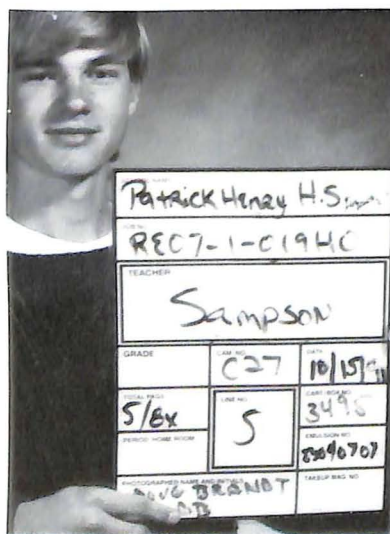 Patrick Henry H.S.
REC7-1-C19HC
TEACHER
Sampson
GRADE
CAM. NO.
C27
DATE
10/15/
TOTAL PKGS
5/8x
LINE NO.
5
CART. BOX NO.
3495
PERIOD HOME ROOM
EMULSION NO.
PHOTOGRAPHED NAME AND INITIALS
DOUG BRANDT
DB
TAKEUP MAG. NO.